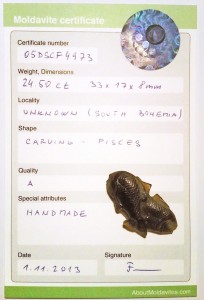 Moldavite certificate
Certificate number
05DSCF4473
Weight, Dimensions
24.50 ct 33 x 17 x 8mm
Locality
UNKNOWN (SOUTH BOHEMIA)
Shape
CARVING - PISCES
Quality
A
Special attributes
HANDMADE
Date
Signature
1.11.2013
AboutMoldavites.com